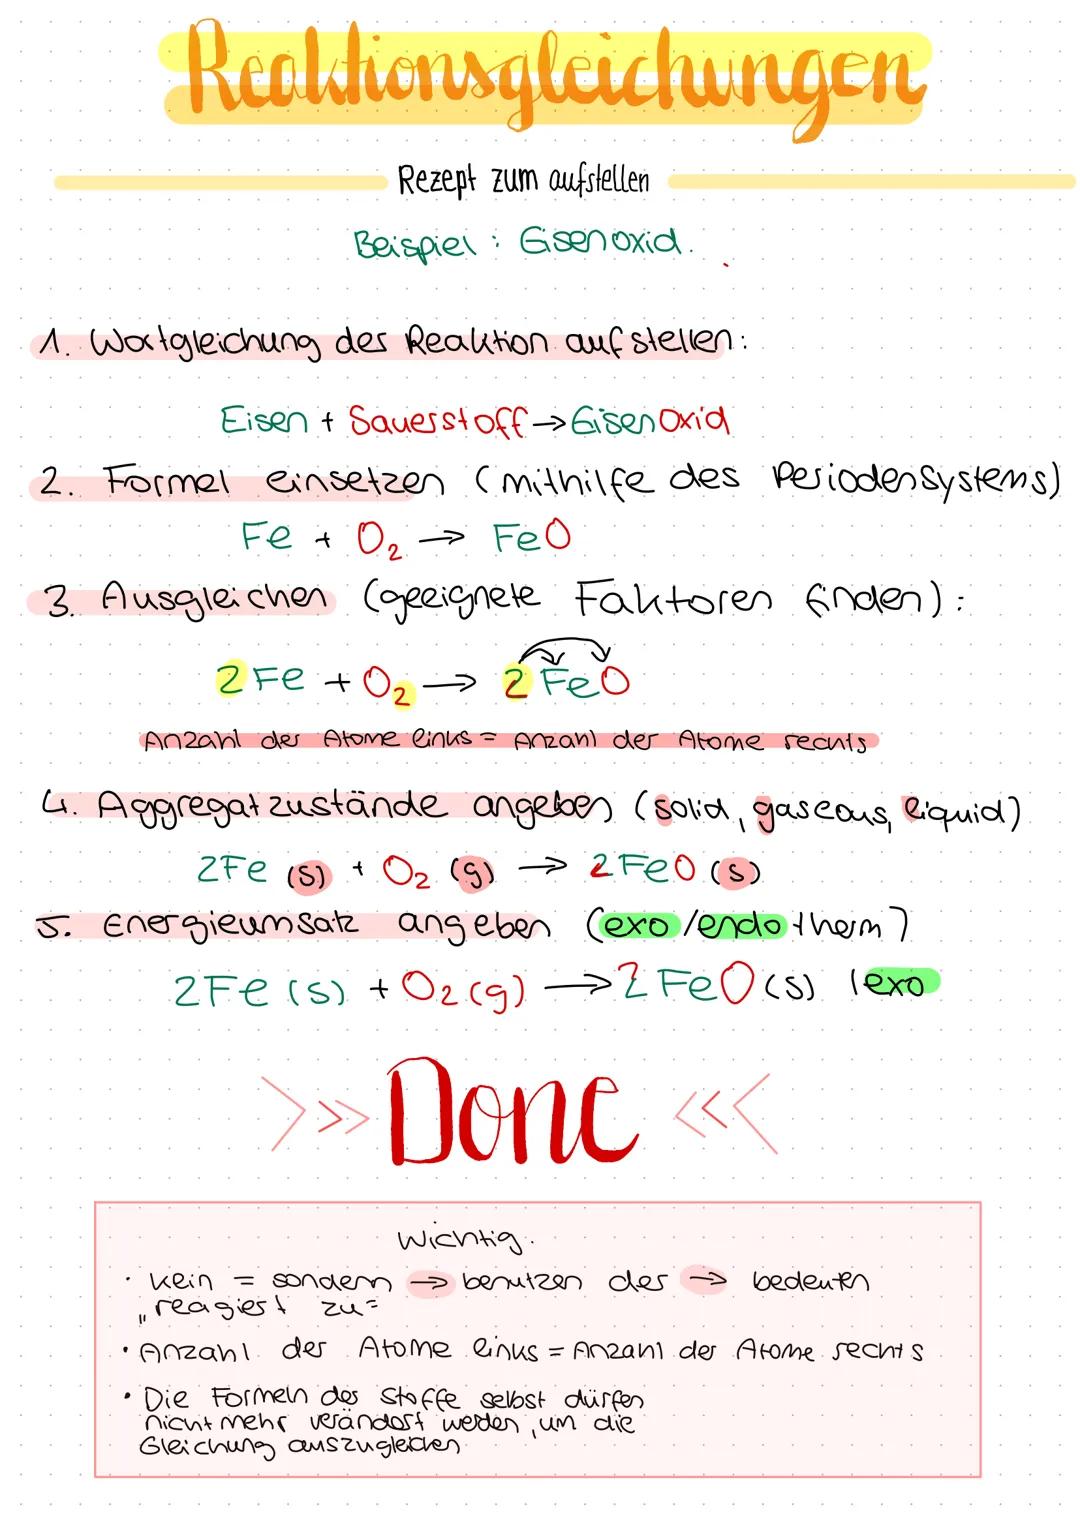 Reaktionsgleichungen
Rezept zum aufstellen
Beispiel: Eisenoxid.
1. Wortgleichung der Reaktion aufstellen:
Eisen + Sauerstoff → EisenOxid
2. Formel einsetzen (mithilfe des Periodensystems)
Fe + O₂ → FeO
3. Ausgleichen (geeignete Faktoren finden):
2 Fe + O₂ → 2 FeO
Anzahl der Atome links = Anzahl der Atome rechts
4. Aggregatzustände angeben (solid, gaseous, liquid)
2Fe (s) + O₂ (g) → 2 FeO (s)
5. Energieumsatz angeben (exo/endotherm)
2Fe (s) + O₂(g) → 2 FeO (s) | exo
>>> Done <<<
Wichtig.
· kein = sondern → benutzen der → bedeuten
„reagiert zu"
· Anzahl der Atome links = Anzahl der Atome rechts
· Die Formeln der Stoffe selbst dürfen
nicht mehr verändert werden, um die
Gleichung auszugleichen